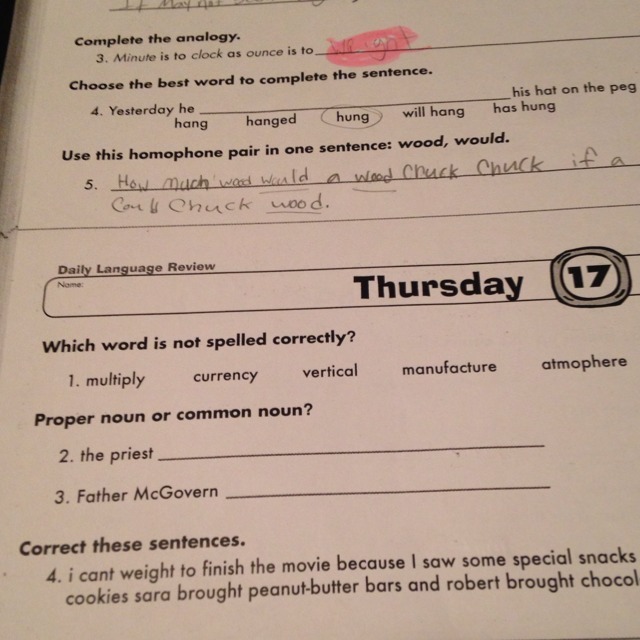 If May not
Complete the analogy.
3. Minute is to clock as ounce is to weight
Choose the best word to complete the sentence.
4. Yesterday he his hat on the peg
hang hanged hung will hang has hung
Use this homophone pair in one sentence: wood, would.
5. How much wood would a wood chuck chuck if a
Could chuck wood.
Daily Language Review
Name:
Thursday 17
Which word is not spelled correctly?
1. multiply currency vertical manufacture atmophere
Proper noun or common noun?
2. the priest
3. Father McGovern
Correct these sentences.
4. i cant weight to finish the movie because I saw some special snacks
cookies sara brought peanut-butter bars and robert brought chocol